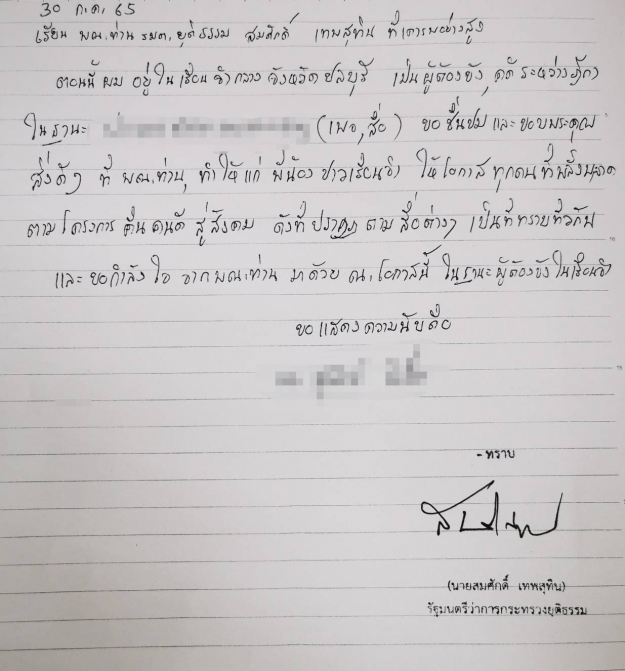 30 ก.ค. 65
เรียน พณ.ท่าน รมต.ยุติธรรม สมศักดิ์ เทพสุทิน ที่เคารพอย่างสูง
ตอนนี้ ผม อยู่ใน เรือนจำกลาง จังหวัด ชลบุรี เป็นผู้ต้องขัง คดี ระหว่างฎีกา
ในฐานะ (เพจ, สื่อ) ขอชื่นชม และ ขอบพระคุณ
สิ่งดีๆ ที่ พณ.ท่าน ทำให้แก่ พี่น้อง ชาวเรือนจำ ให้โอกาส ทุกคน ที่พลั้งพลาด
ตามโครงการ คืนคนดี สู่สังคม ดังที่ปรากฏ ตามสื่อต่างๆ เป็นที่ทราบทั่วกัน
และ ขอกำลังใจ จากพณ.ท่าน มาด้วย ณ.โอกาสนี้ ในฐานะ ผู้ต้องขัง ในเรือนจำ
ขอแสดงความนับถือ
-ทราบ
(นายสมศักดิ์ เทพสุทิน)
รัฐมนตรีว่าการกระทรวงยุติธรรม